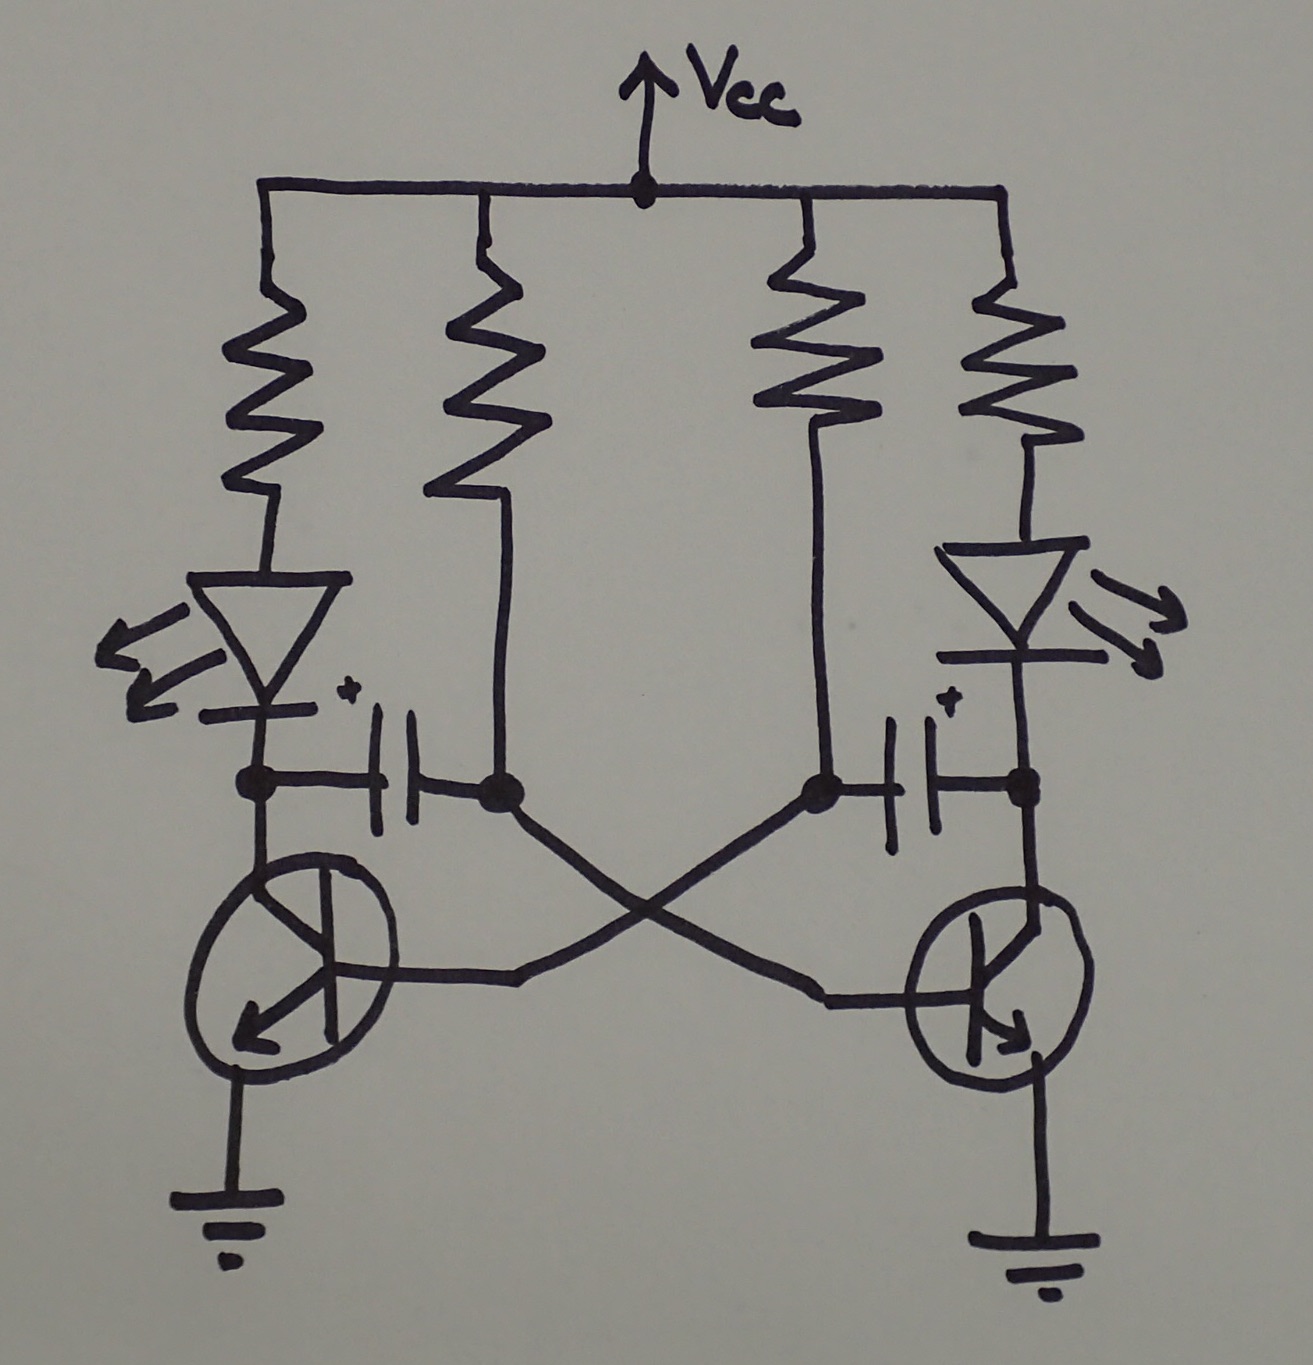 Vcc
+
+